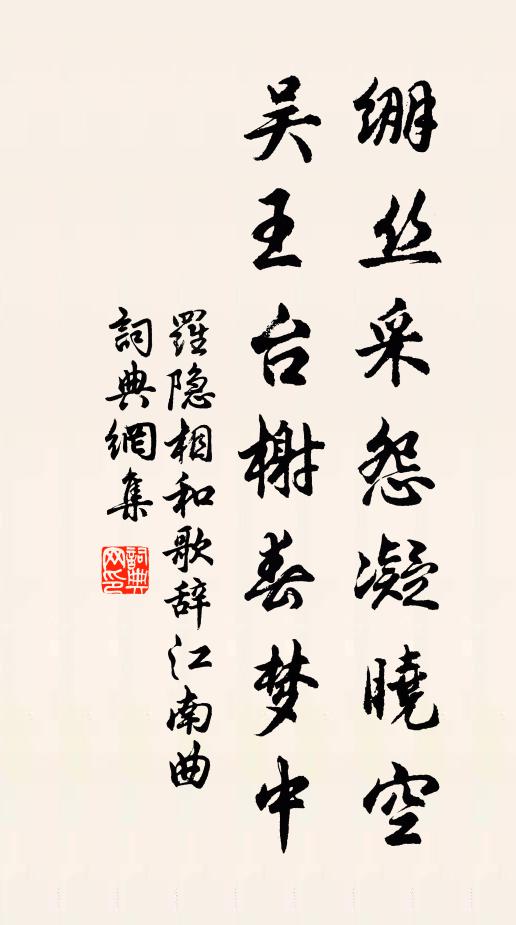 绷丝采怨凝曉空
吴王台榭春梦中
羅隐相和歌辞江南曲
詞典網集
詞典网印